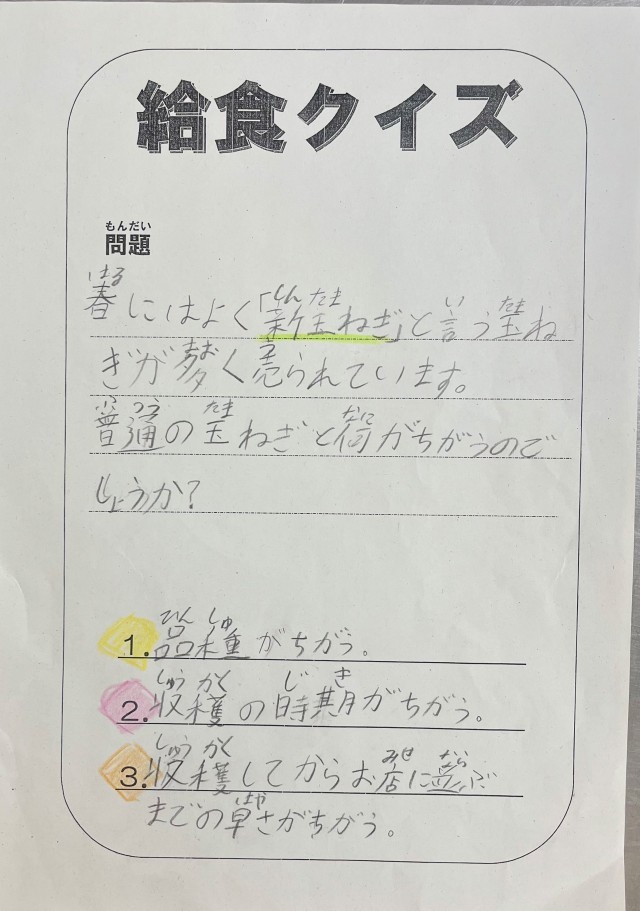 給食クイズ
もんだい
問題
はる しん たま い たま
春にはよく「新玉ねぎ」と言う玉ね
おお う
ぎが多く売られています。
ふ つう たま なに
普通の玉ねぎと何がちがうので
しょうか?
ひん しゅ
1. 品種がちがう。
しゅう かく じ き
2. 収穫の時期がちがう。
しゅう かく みせ なら
3. 収穫してからお店に並ぶ
はや
までの早さがちがう。